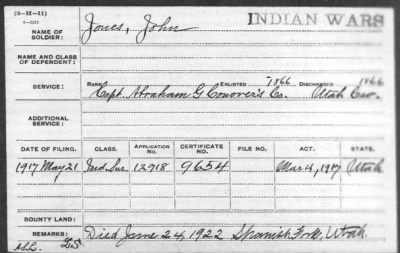 (3-II-11)
INDIAN WARS
NAME OF SOLDIER: Jones, John
NAME AND CLASS OF DEPENDENT:
SERVICE: RANK ENLISTED 1866 DISCHARGED 1866
Capt. Abraham G. Conover's Co. Utah Cav.
ADDITIONAL SERVICE:
DATE OF FILING. CLASS. APPLICATION NO. CERTIFICATE NO. FILE NO. ACT. STATE.
1917 May 21 Sur. 12918 9654 Mar 4, 1917 Utah
BOUNTY LAND:
REMARKS: Died June 24, 1922 Spanish Fork, Utah.